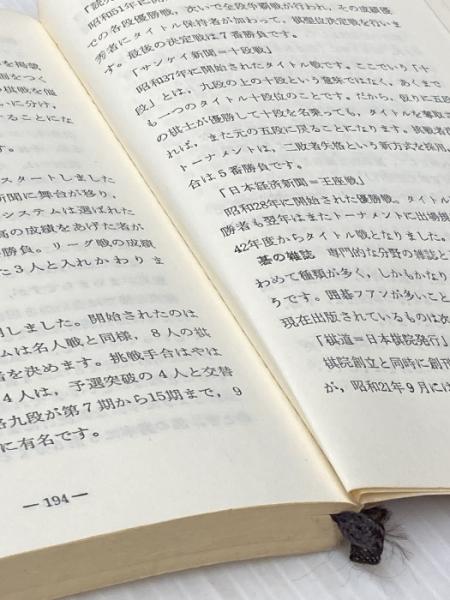 を掲載
面をつく
の棋戦を価
いに分け、
ることにな
す。
スタートしました
新聞に舞台が移り、
システムは選ばれた
高の成績をあげた者が
勝負。リーグ戦の成績
た3人と入れかわりま
開しました。開始されたのは
ムは名人戦と同様、8人の棋
者を決めます。挑戦手合はやは
4人は、予選突破の4人と交替
格九段が第7期から15期まで、9
に有名です。
―194―
昭和51年に開
での各段優勝戦、次いで全段争覇戦が行われ、その成績優
秀者にタイトル保持者が加わって、棋聖位決定戦を行いま
す。最後の決定戦は7番勝負です。
「サンケイ新聞=十段戦」
昭和37年に開始されたタイトル戦です。ここでいう「十
段」とは、九段の上の十段という意味ではなく、あくまで
も一つのタイトル十段位のことです。だから、仮りに五段
の棋士が優勝して十段を名乗っても、タイトルを奪取さ
れれば、また元の五段に戻ることになります。挑戦者
トーナメントは、二敗者失格という新方式を採用
合は5番勝負です。
「日本経済新聞=王座戦」
昭和28年に開始された優勝戦。タイトル
勝者も翌年はまたトーナメントに出場
42年度からタイトル戦となりました。
碁の雑誌 専門的な分野の雑誌と
わめて種類が多く、しかもかなり
うです。囲碁フアンが多いこと
現在出版されているものは次
「棋道=日本棋院発行」
棋院創立と同時に創刊
が、昭和21年9月には